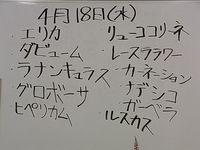 4月18日(水)
・エリカ
・ダビューム
・ラナンキュラス
・グロボーサ
・ヒペリカム
・リューココリーネ
・レースフラワー
・カーネーション
・ナデシコ
・ガーベラ
・ルスカス